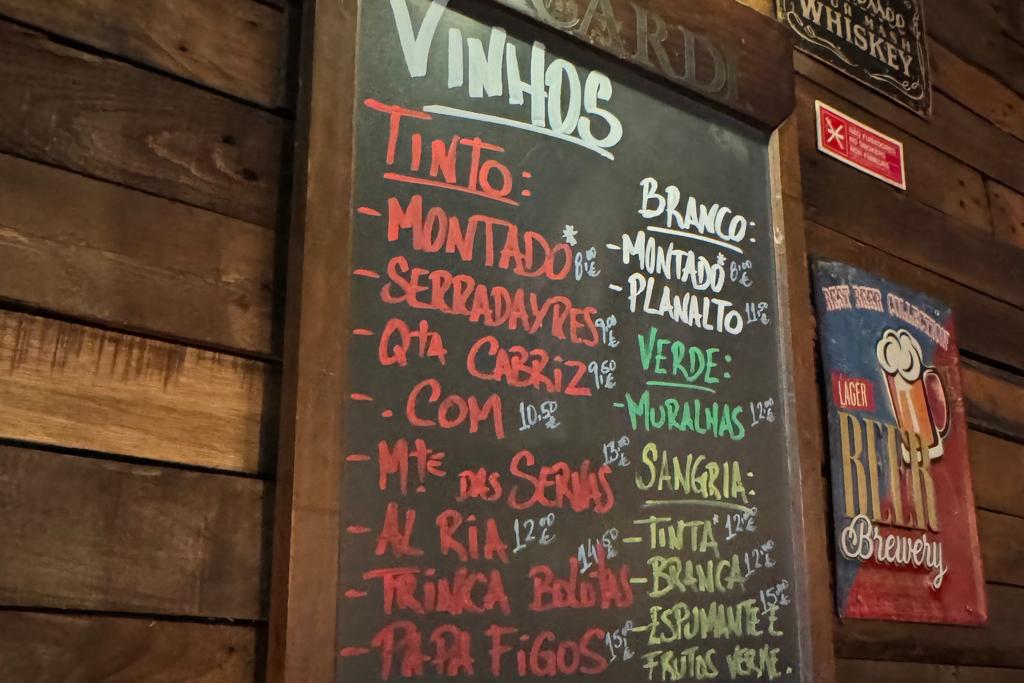 VINHOS
TINTO:
- MONTADO* 8,00€
- SERRADAYRES 9,00€
- QTA CABRIZ 9,50€
- .COM 10,50€
- MTE DAS SERVAS 13,00€
- AL RIA 12,00€
- TRINCA BOLOTAS 14,50€
- PAPA FIGOS 15,00€
BRANCO:
- MONTADO* 8,00€
- PLANALTO
VERDE:
- MURALHAS 12,00€
SANGRIA:
- TINTA* 12,00€
- BRANCA 12,00€
- ESPUMANTE E 15,00€
FRUTOS VERME.
WHISKEY
NÃO FUMADORES
NO SMOKERS
NON FUMEURS
BEST BEER COLLECTION
LAGER
BEER
Brewery